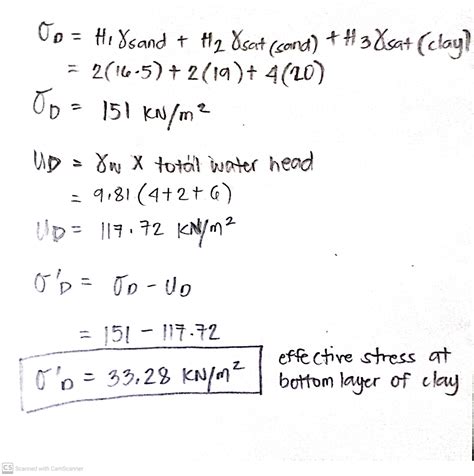 σD = H1 γsand + H2 γsat (sand) + H3 γsat (clay)
= 2(16.5) + 2(19) + 4(20)
σD = 151 kN/m²
UD = γw x total water head
= 9.81 (4+2+6)
UD = 117.72 kN/m²
σ'D = σD - UD
= 151 - 117.72
σ'D = 33.28 kN/m²
effective stress at
bottom layer of clay
CS Scanned with CamScanner